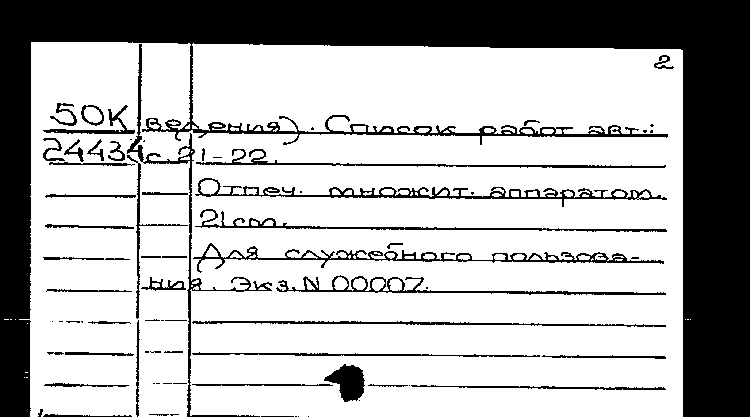 2
50К ведения). Список работ авт.:
24434 с. 21-22.
Отпеч. множит. аппаратом.
21 cm.
Для служебного пользова-
ния. Экз. N 00007.